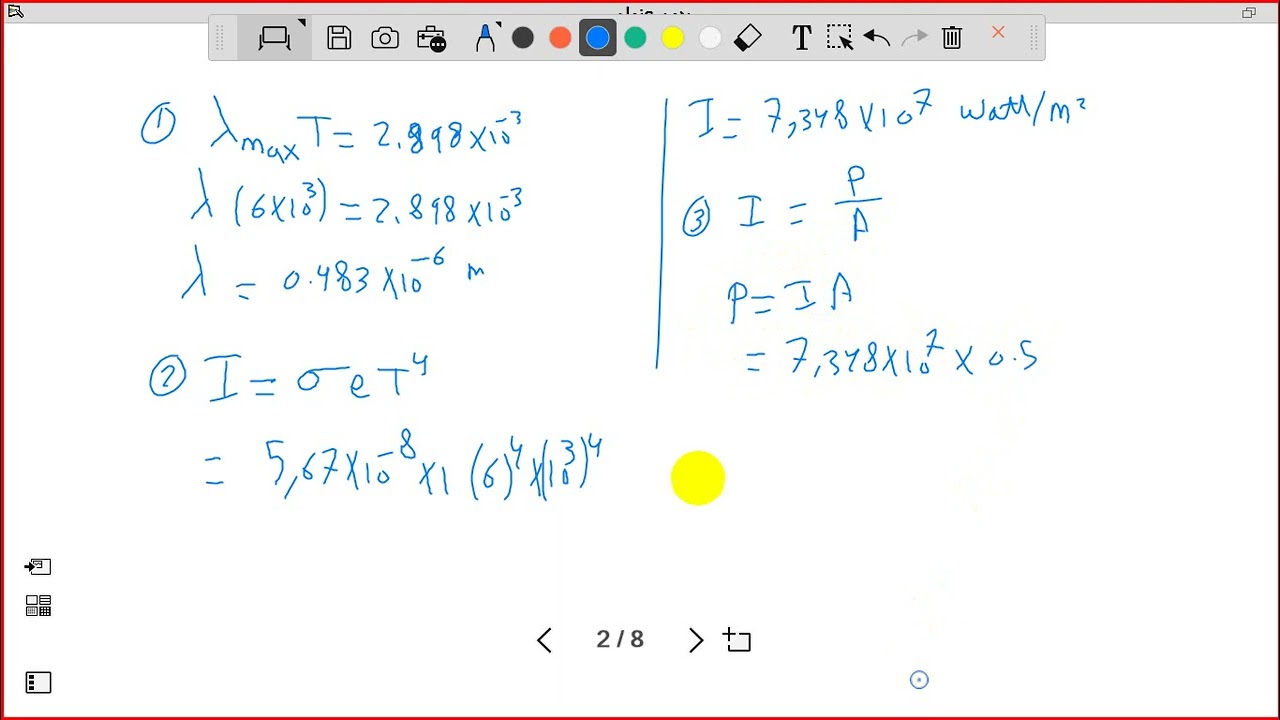 ① λmax T = 2.898×10⁻³
λ (6×10³) = 2.898×10⁻³
λ = 0.483×10⁻⁶ m
② I = σ e T⁴
= 5,67×10⁻⁸ ×1 (6)⁴×(10³)⁴
I = 7,348×10⁷ watt/m²
③ I = P/A
P = I A
= 7,348×10⁷ × 0.5
2 / 8